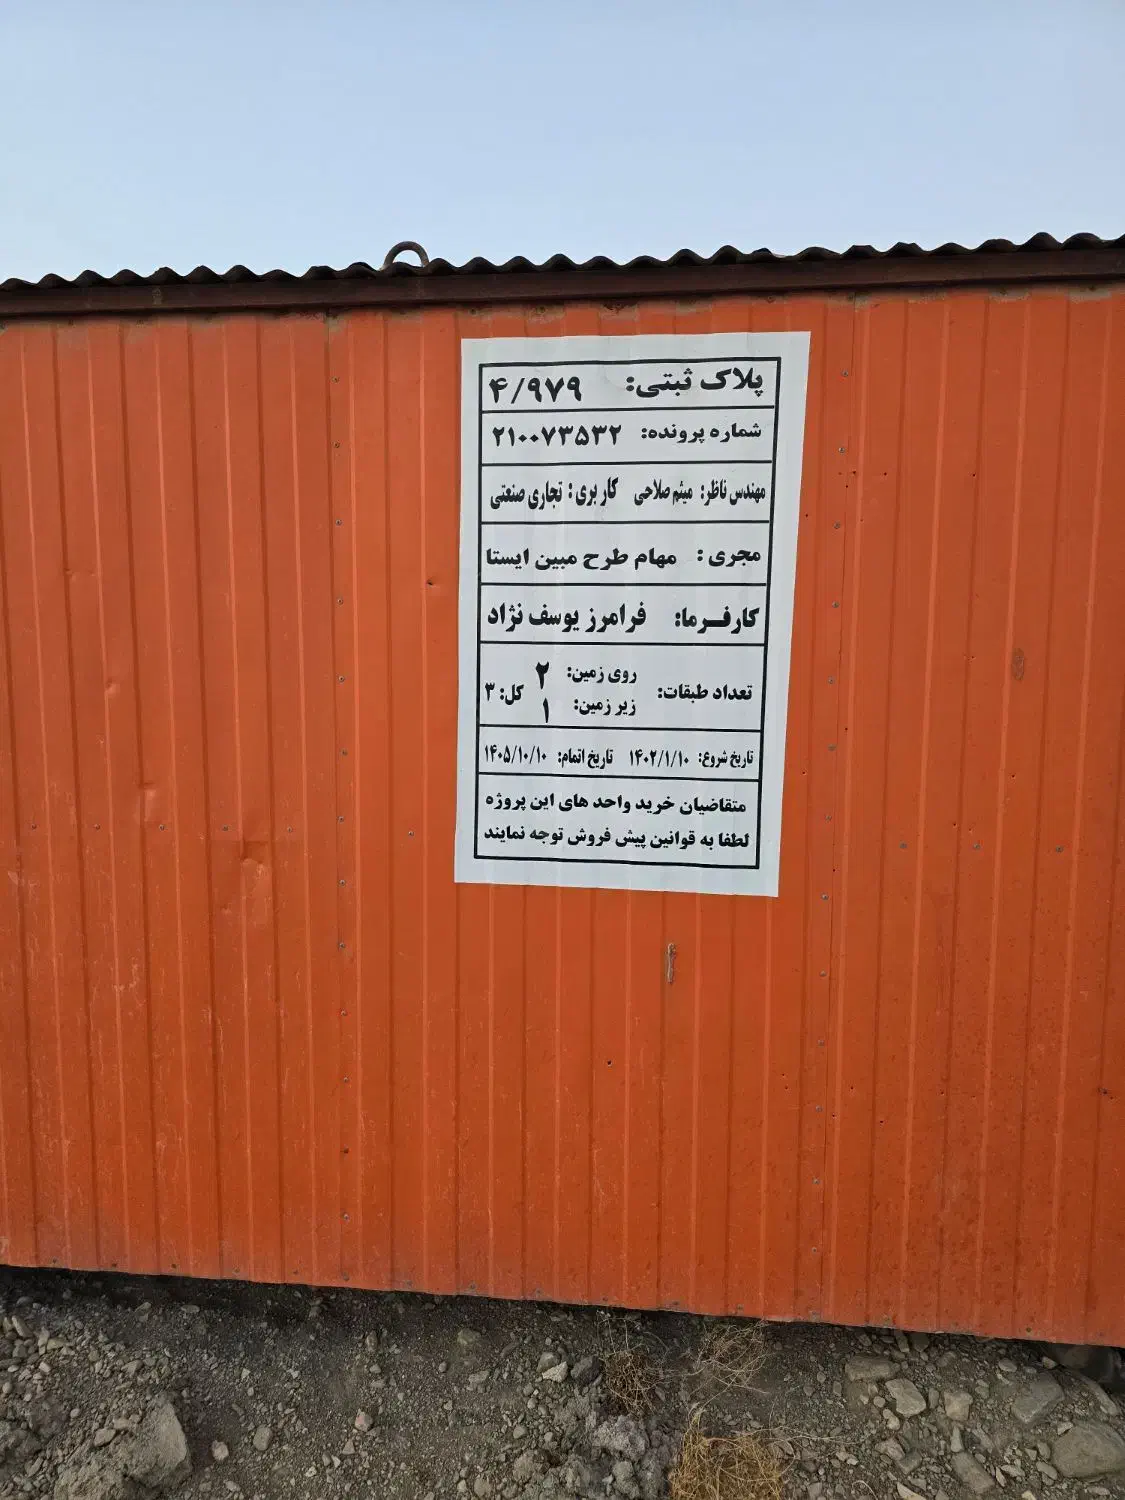 پلاک ثبتی: ۴/۹۷۹
شماره پرونده: ۲۱۰۰۷۳۵۳۲
مهندس ناظر: میثم صلاحی کاربری: تجاری صنعتی
مجری: مهام طرح مبین ایستا
کارفـرما: فرامرز یوسف نژاد
تعداد طبقات: روی زمین: ۲
زیر زمین: ۱ کل: ۳
تاریخ شروع: ۱۴۰۲/۱/۱۰ تاریخ اتمام: ۱۴۰۵/۱۰/۱۰
متقاضیان خرید واحد های این پروژه
لطفا به قوانین پیش فروش توجه نمایند